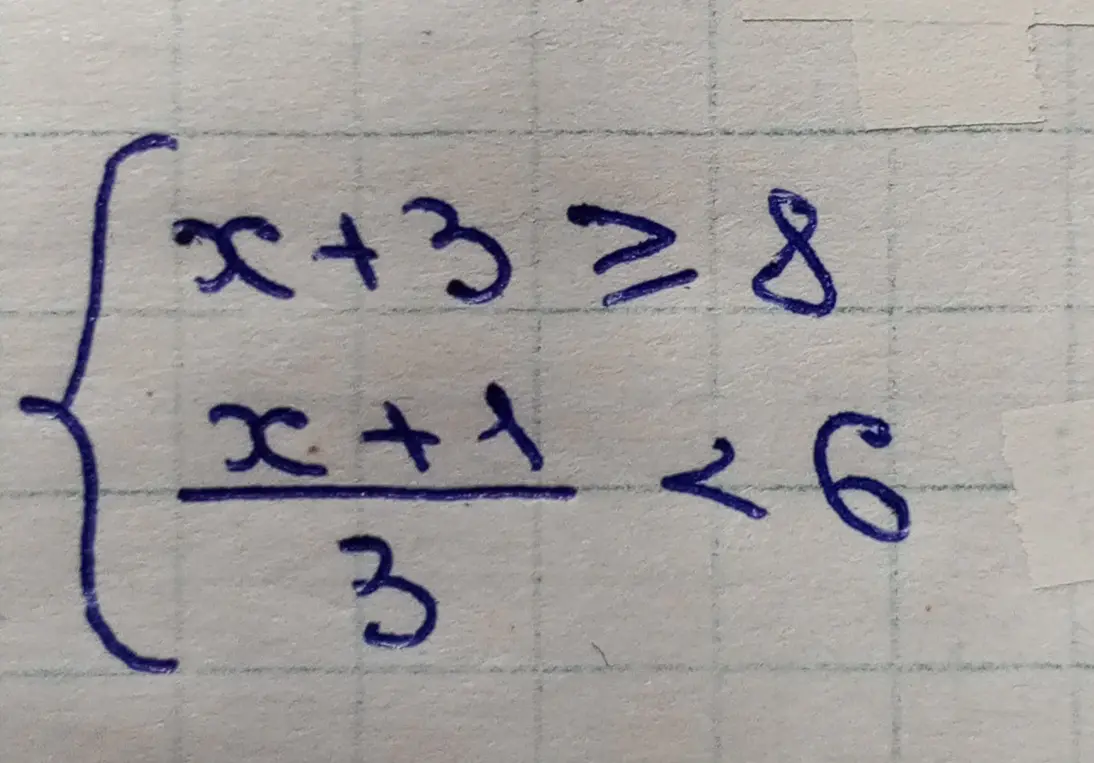 x + 3 ≥ 8
(x + 1)/3 < 6